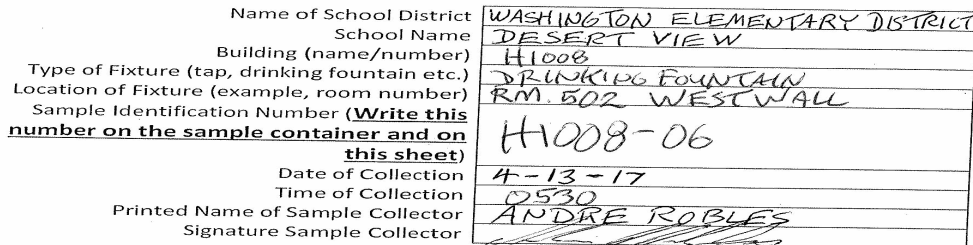 Name of School District WASHINGTON ELEMENTARY DISTRICT
School Name DESERT VIEW
Building (name/number) H1008
Type of Fixture (tap, drinking fountain etc.) DRINKING FOUNTAIN
Location of Fixture (example, room number) RM. 502 WEST WALL
Sample Identification Number (Write this
number on the sample container and on H1008-06
this sheet)
Date of Collection 4-13-17
Time of Collection 0530
Printed Name of Sample Collector ANDRE ROBLES
Signature Sample Collector